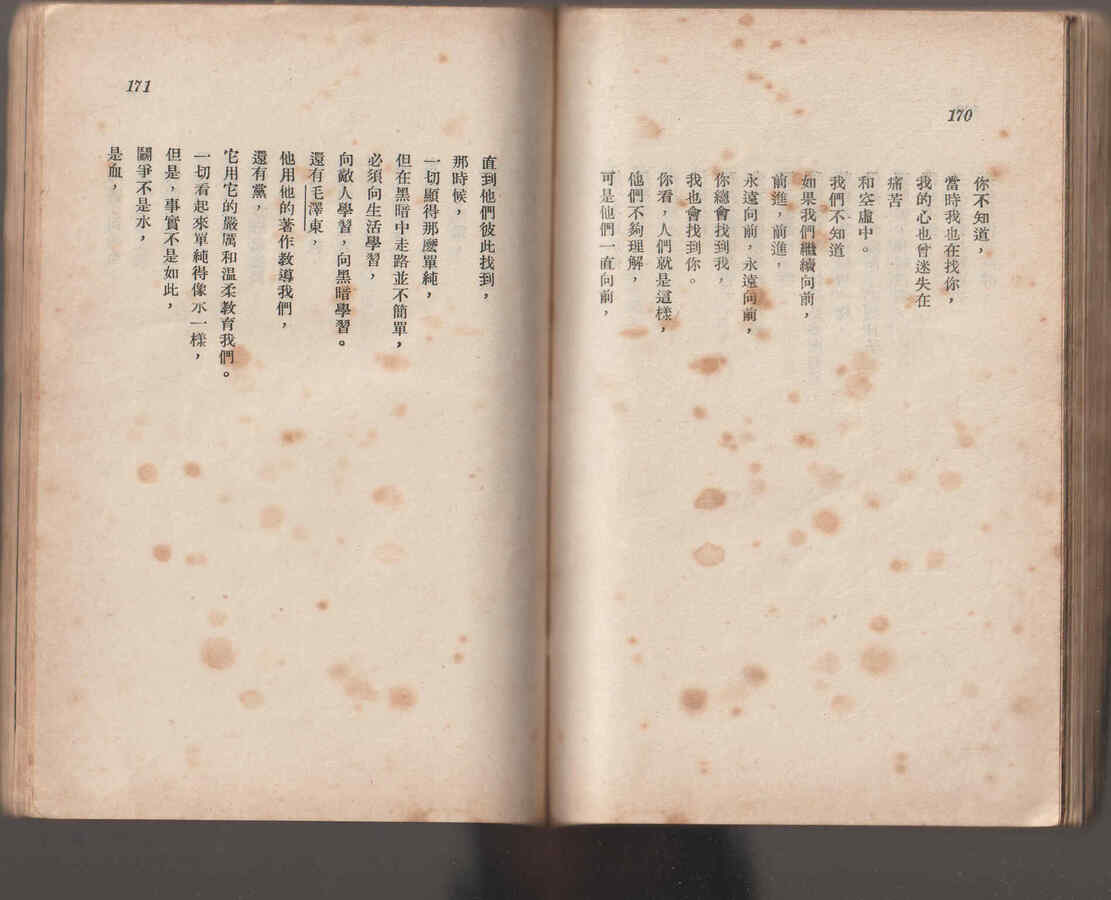 170
你不知道，
當時我也在找你，
我的心也曾迷失在
痛苦
和空虛中。
我們不知道
如果我們繼續向前，
前進，前進，
永遠向前，永遠向前，
你總會找到我，
我也會找到你。
你看，人們就是這樣，
他們不夠理解，
可是他們一直向前，
171
直到他們彼此找到，
那時候，
一切顯得那麼單純，
但在黑暗中走路並不簡單，
必須向生活學習，
向敵人學習，向黑暗學習。
還有毛澤東，
他用他的著作敎導我們，
還有黨，
它用它的嚴厲和温柔敎育我們。
一切看起來單純得像水一樣，
但是，事實不是如此，
鬭爭不是水，
是血，